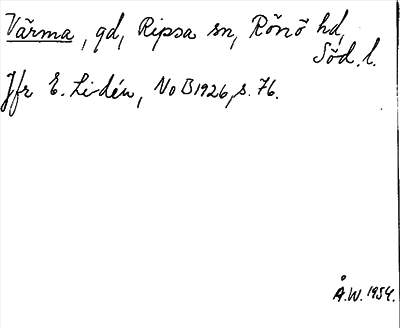 Värma, gd, Ripsa sn, Rönö hd,
Söd. l.
Jfr E. Lidén, NoB 1926, s. 76.
Å.W. 1954.